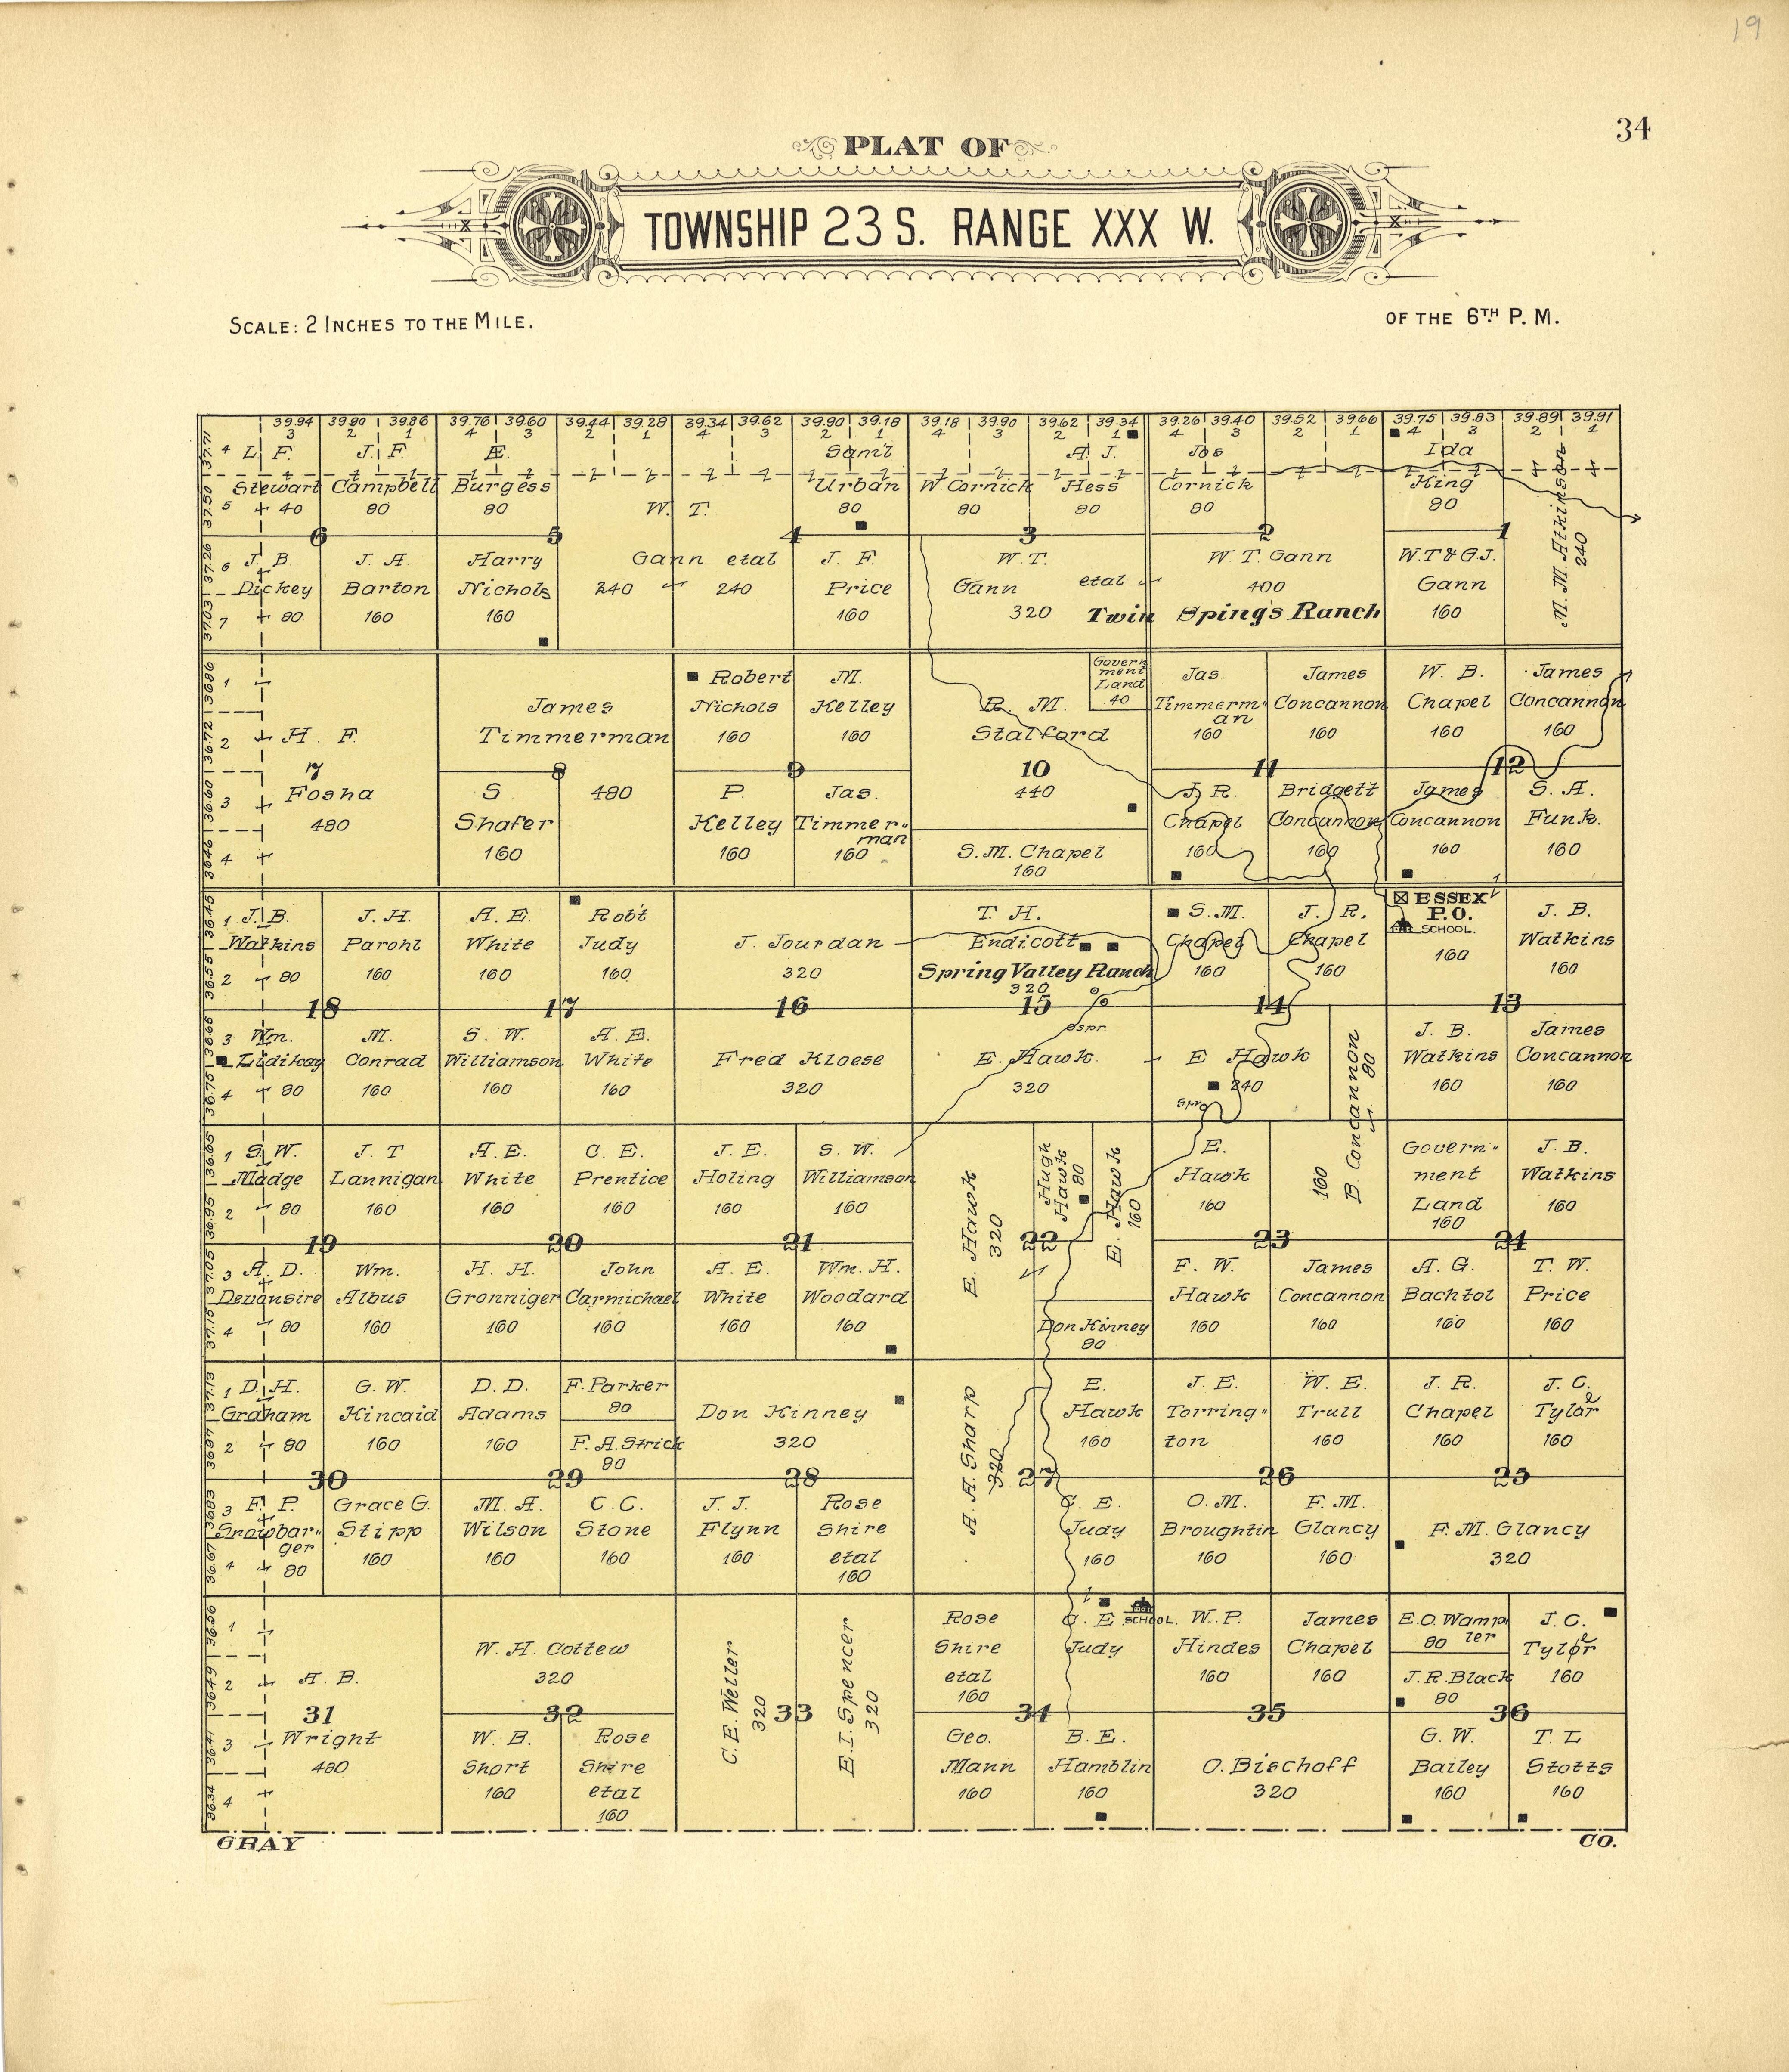 19
34
PLAT OF
TOWNSHIP 23 S. RANGE XXX W.
SCALE: 2 INCHES TO THE MILE.
OF THE 6TH P. M.
39.94 39.90 39.86 39.76 39.60 39.44 39.28 39.34 39.62 39.90 39.18 39.18 39.90 39.62 39.34 39.26 39.40 39.52 39.66 39.75 39.83 39.89 39.91
3 2 1 4 3 2 1 4 3 2 1 4 3 2 1 4 3 2 1 4 3 2 1
4 L. F. Stewart 40
5
J. F. Campbell 80
Æ. Burgess 80
W. T. Gann etal 240 240
Sam'l Urban 80
W. Cornick 80
A. J. Hess 80
Jos Cornick 80
Ida King 80
M. M. Atkinson 240
6 5 4 3 2 1
6 J. B. Dickey 80
7
J. A. Barton 160
Harry Nichols 160
J. F. Price 160
W. T. Gann etal 320
W. T. Gann 400
Twin Sping's Ranch
W. T & G. J. Gann 160
1
2
3
4
H. F. Fosha 480
7
James Timmerman 480
8
S Shafer 160
Robert Nichols 160
M. Kelley 160
9
P. Kelley 160
Jas. Timmer-man 160
R. M. Stalford 440
10
Govern ment Land 40
S. M. Chapel 160
Jas. Timmerm-an 160
James Concannon 160
11
J. R. Chapel 160
Bridgett Concannon 160
W. B. Chapel 160
James Concannon 160
12
James Concannon 160
S. A. Funk. 160
1 J. B. Watkins 80
2
J. H. Parohl 160
A. E. White 160
Rob't Judy 160
J. Jourdan 320
T. H. Endicott
Spring Valley Ranch
320
S. M. Chapel 160
J. R. Chapel 160
ESSEX P.O.
SCHOOL.
160
J. B. Watkins 160
18 17 16 15 14 13
3 Wm. Lidikay 80
4
M. Conrad 160
S. W. Williamson 160
A. E. White 160
Fred Kloese 320
Spr.
E. Hawk. 320
E Hawk 240
Spr
B. Concannon 80 160
J. B. Watkins 160
James Concannon 160
1 S. W. Madge 80
2
J. T Lannigan 160
A. E. White 160
C. E. Prentice 160
J. E. Holing 160
S. W. Williamson 160
E. Hawk 320
Hugh Hawk 80
E. Hawk 160
E. Hawk 160
Govern-ment Land 160
J. B. Watkins 160
19 20 21 22 23 24
3 A. D. Devonsire 80
4
Wm. Albus 160
H. H. Gronniger 160
John Carmichael 160
A. E. White 160
Wm. H. Woodard 160
Don Kinney 80
F. W. Hawk 160
James Concannon 160
A. G. Bachtol 160
T. W. Price 160
1 D. H. Graham 80
2
G. W. Kincaid 160
D. D. Adams 160
F. Parker 80
F. A. Strick 80
Don Kinney 320
A. A. Sharp 320
E. Hawk 160
J. E. Torring-ton
W. E. Trull 160
J. R. Chapel 160
J. C. Tyler 160
30 29 28 27 26 25
3 F. P. Snowbar-ger 80
4
Grace G. Stipp 160
M. A. Wilson 160
C. C. Stone 160
J. J. Flynn 160
Rose Shire etal 160
C. E. Judy 160
O. M. Broughtin 160
F. M. Glancy 160
F. M. Glancy 320
1
2
3
4
A. B. Wright 480
31
W. H. Cottew 320
32
W. B. Short 160
Rose Shire etal 160
C. E. Weller 320
33
E. I. Spencer 320
Rose Shire etal 160
C. E Judy
SCHOOL.
W. P. Hindes 160
James Chapel 160
E. O. Wampler 80
J. R. Black 80
J. C. Tyler 160
34 35 36
Geo. Mann 160
B. E. Hamblin 160
O. Bischoff 320
G. W. Bailey 160
T. L Stotts 160
GRAY CO.